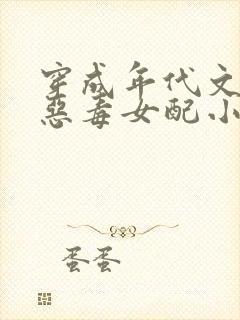 穿成年代文
恶毒女配小
蛋蛋